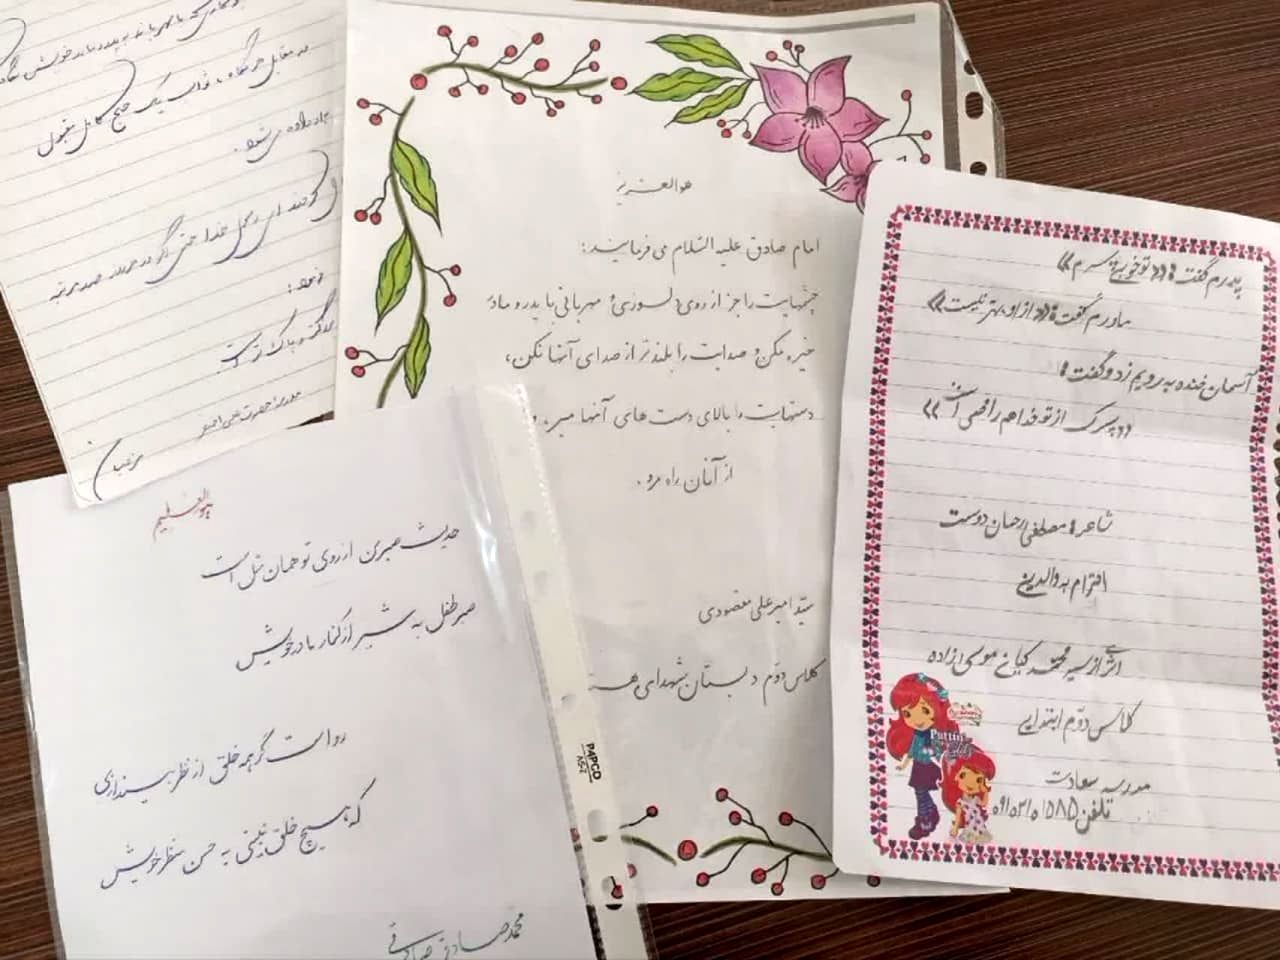 در مقابل هر نگاه، ثواب یک حج کامل مقبول
داده می شود.
حتی اگر در هر روز صد مرتبه
مدرسه حضرت علی اصغر
هوالعزیز
امام صادق علیه السّلام می فرمایند:
چشمهایت را جز از روی دلسوزی و مهربانی با پدر و مادر
خیره مکن و صدایت را بلندتر از صدای آنها نکن،
دستهایت را بالای دست های آنها مبر و
از آنان راه مرو.
سیّد امیرعلی مقصودی
کلاس دوّم دبستان شهدای
پدرم گفت: ((تو خوبی پسرم))
مادرم گفت: ((از او بهتر نیست))
آسمان خنده به رویم زد و گفت:
((پسرک از تو خدا هم راضی است))
شاعر: مصطفی رحمان دوست
احترام به والدین
اثری از سید محمّد کیان موسی زاده
کلاس دوّم ابتدایی
مدرسه سعادت
تلفن ۰۹۱۵۳۱۰۱۵۸۵
هوالعلیم
حدیث صبر من از روی تو همان مثل است
صبر طفل به شیر از کنار مادر خویش
رواست گر همه خلق از نظر بیندازی
که هیچ خلق نبینی به حسن منظر خویش
محمدصادق صادقی
PAPCO
A5-Z